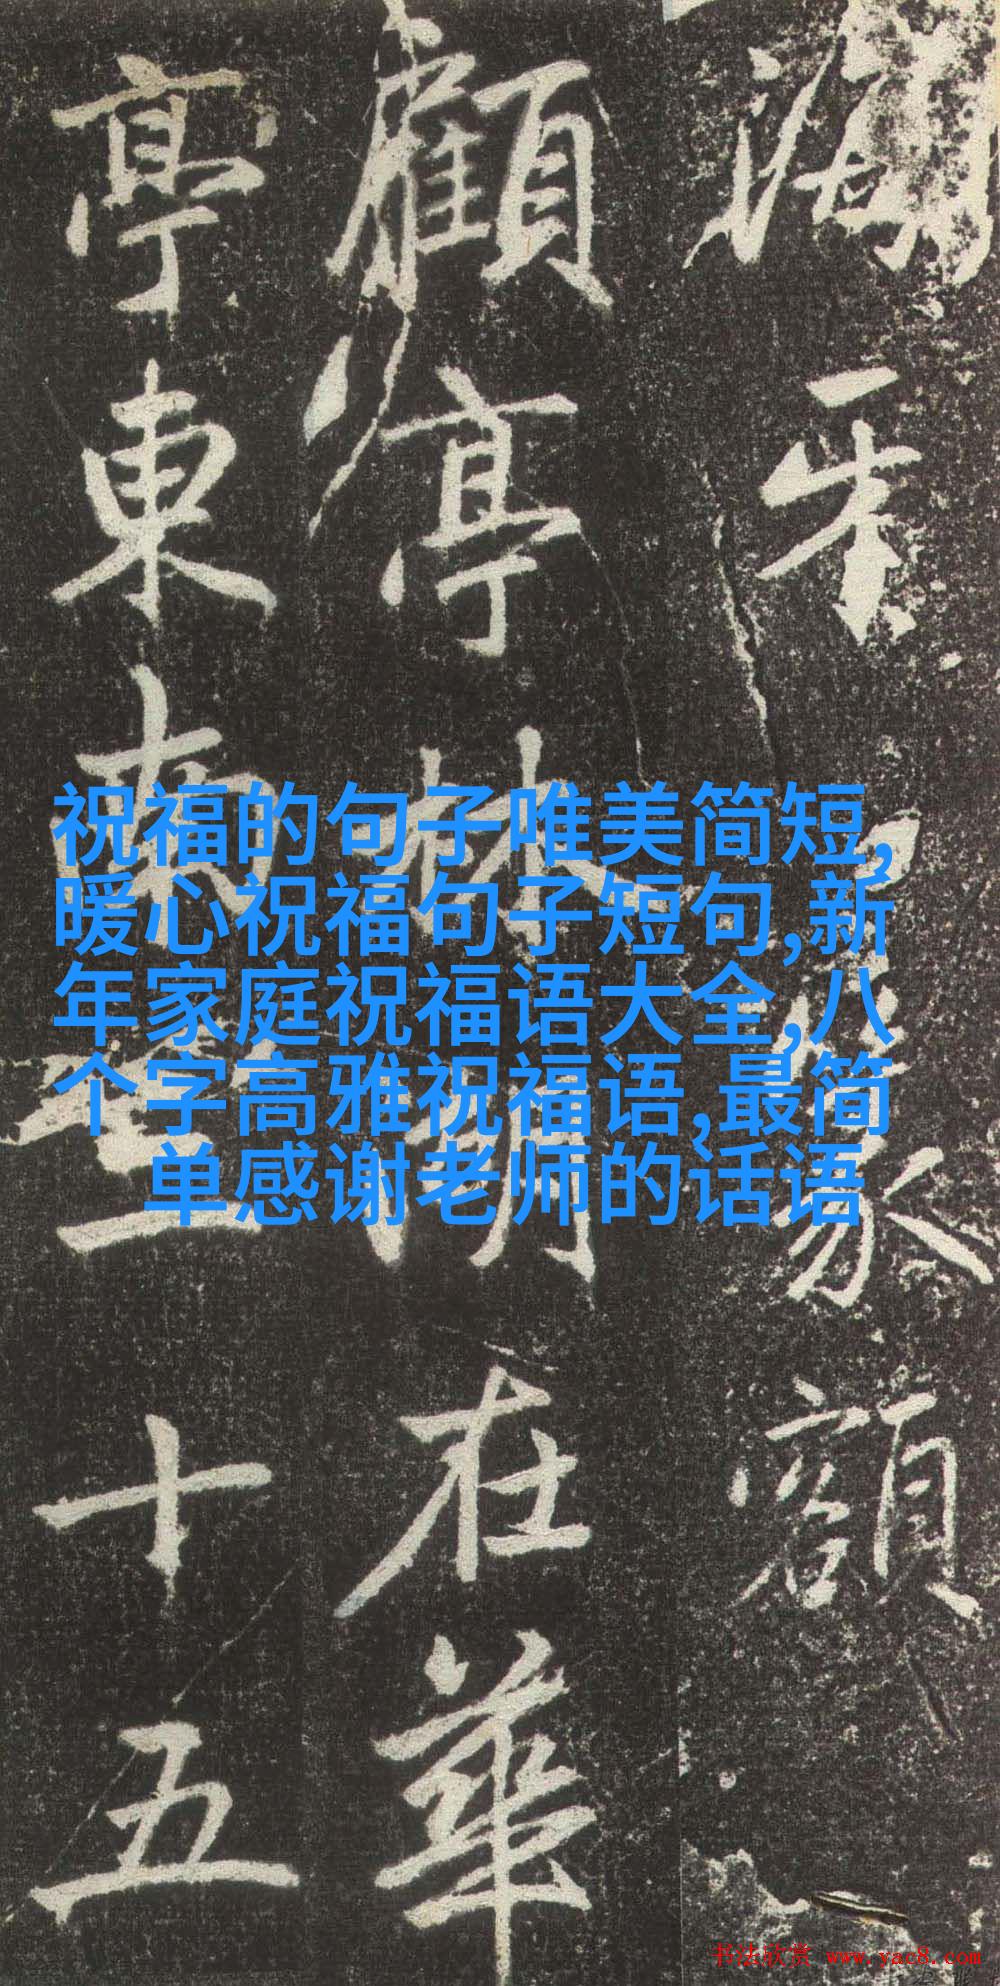 額
顧亭林湖在華
亭東南三十五
祝福的句子唯美简短,
暖心祝福句子短句,新
年家庭祝福语大全,八
个字高雅祝福语,最简
单感谢老师的话语
书法欣赏 www.yac8.com